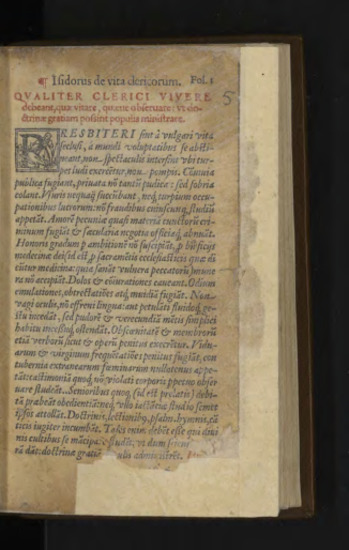 ¶ Isidorus de vita clericorum. Fol. 1
5
QVALITER CLERICI VIVERE
debeant, quæ vitare, quæue obseruare: vt do-
ctrinæ gratiam possint populis ministrare.
PRESBITERI sint à vulgari vita
seclusi, à mundi voluptatibus se absti-
neant, non spectaculis intersint vbi tur-
pes ludi exercētur, non pompis. Cōuiuia
publica fugiant, priuata nō tantū pudica: sed sobria
colant. Vsuris nequaq̄ succūbant, neq̄ turpium occu-
pationibus lucrorum: nō fraudibus cuiuscunq̄ studiū
appetāt. Amorē pecuniæ quasi materiā cunctorū cri-
minum fugiāt & sæcularia negotia officiaq̄ abneāt.
Honoris gradum p ambitionē nō suscipiāt, p
medecinæ dei (id est p sacramētis ecclesiasticis quæ dī
cūtur medicina: quia sanāt vulnera peccatorū) mune
ra nō accipiāt. Dolos & cōiurationes caueant. Odium
emulationes, obtrectatiōes atq̄ inuidiā fugiāt. Non
vagi oculis, nō effreni lingua: aut petulāti fluidoq̄ ge-
stu incedāt, sed pudorē & verecundiā mētis simplici
habitu incessuq̄ ostendāt. Obscœnitatē & membrorū
etiā verborū sicut & operū penitus execrētur. Vidu-
arum & virginum frequētatiōes penitus fugiāt, con
tubernia extranearum fœminarum nullatenus appe-
tāt: castimoniā quoq̄ nō violati corporis ppetuo obser
uare studeāt. Senioribus quoq̄ (id est prælatis) debi-
tā præbeāt obedientiā: neq̄ vllo iactātiæ studio semet
ipsos attollāt. Doctrinis, lectionibus, psalmis, hymnis, cā
ticis iugiter incumbāt. Tales enim debēt esse qui diui
nis cultibus se mācipa studēt, vt dum scienti
rū dāt: doctrinæ gratiā ulis administrēt.